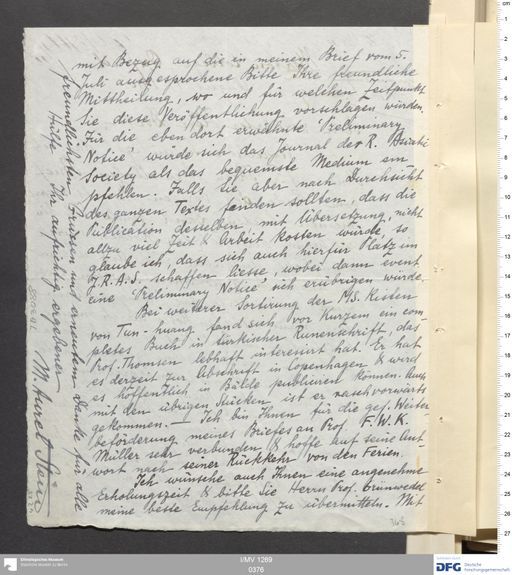 mit Bezug auf die in meinem Brief vom 5.
Juli ausgesprochene Bitte Ihre freundliche
Mittheilung, wo und für welchen Zeitpunkt
Sie diese Veröffentlichung vorschlagen würden.
Für die eben dort erwähnte 'Preliminary
Notice' würde sich das Journal der R. Asiatic
Society als das bequemste Medium em
pfehlen. Falls Sie aber nach Durchsicht
des ganzen Textes fänden sollten, dass die
Publication desselben mit Übersetzung, nicht
allzu viel Zeit & Arbeit kosten würde, so
glaube ich, dass sich auch hierfür Platz im
J.R.A.S. schaffen liesse, wobei dann event
eine 'Preliminary Notice' sich erübrigen würde.
Bei weiterer Sortirung der MS. Kisten
von Tun-huang fand sich vor Kurzem ein com
pletes Buch in türkischer Runenschrift, das
Prof. Thomsen lebhaft interessirt hat. Er hat
es derzeit zur Abschrift in Copenhagen & wird
es hoffentlich in Bälde publiciren können. Auch
mit den übrigen Stücken ist er rasch vorwärts
gekommen. — Ich bin Ihnen für die gef. Weiter
beförderung meines Briefes an Prof. F.W.K.
Müller sehr verbunden & hoffe auf seine Ant
wort nach seiner Rückkehr von den Ferien.
Ich wünsche auch Ihnen eine angenehme
Erholungszeit & bitte Sie Herrn Prof. Grünwedel
meine beste Empfehlung zu übermitteln. Mit
freundlichsten Grüssen und erneutem Danke für alle
Hülfe Ihr aufrichtig ergebener
M. Aurel Stein
365
Ethnologisches Museum
Staatliche Museen zu Berlin
I/MV 1269
0376
DFG
Deutsche
Forschungsgemeinschaft
cm
1
2
3
4
5
6
7
8
9
10
11
12
13
14
15
16
17
18
19
20
21
22
23
24
25
26
27